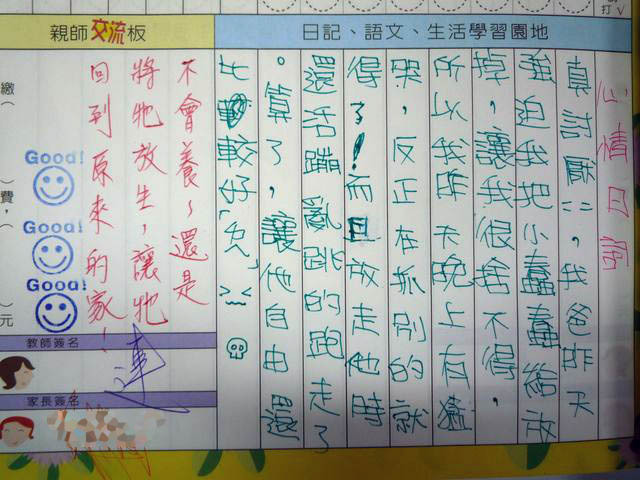 親師交流板
日記、語文、生活學習園地
打V
心情日詞
真討厭==,我爸昨天
強迫我把小蠢蠢給放
掉,讓我很捨不得,
所以我昨天晚上有猛
哭,反正在抓別的就
得了!而且放走他時
還活蹦亂跳的跑走了
。算了,讓他自由還
比較好 >_<
不會養~還是
將牠放生,讓牠
回到原來的家!
Good!
Good!
Good!
繳( 費,( )元
教師簽名
連
家長簽名